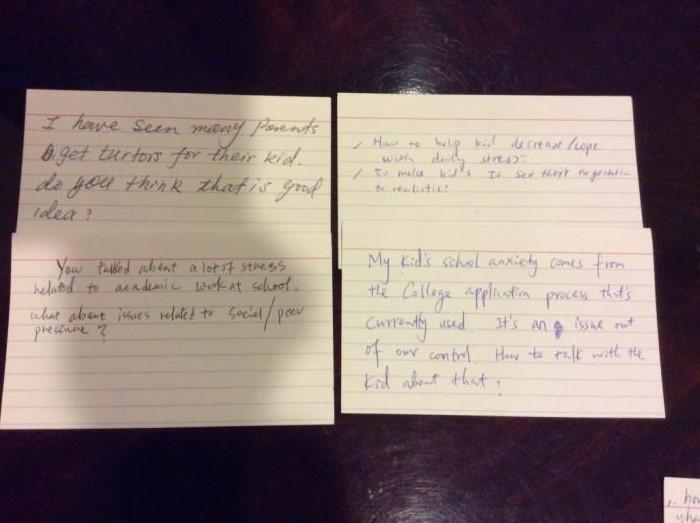 I have seen many Parents
get turtors for their kid.
do you think that is good
idea?
How to help kid decrease/cope
with daily stress?
To make kid's to see their
to realistic?
You talked about a lot of stress
related to academic work at school.
what about issues related to social/peer
pressure?
My kid's school anxiety comes from
the College application process that's
currently used. It's an issue out
of our control. How to talk with the
kid about that?